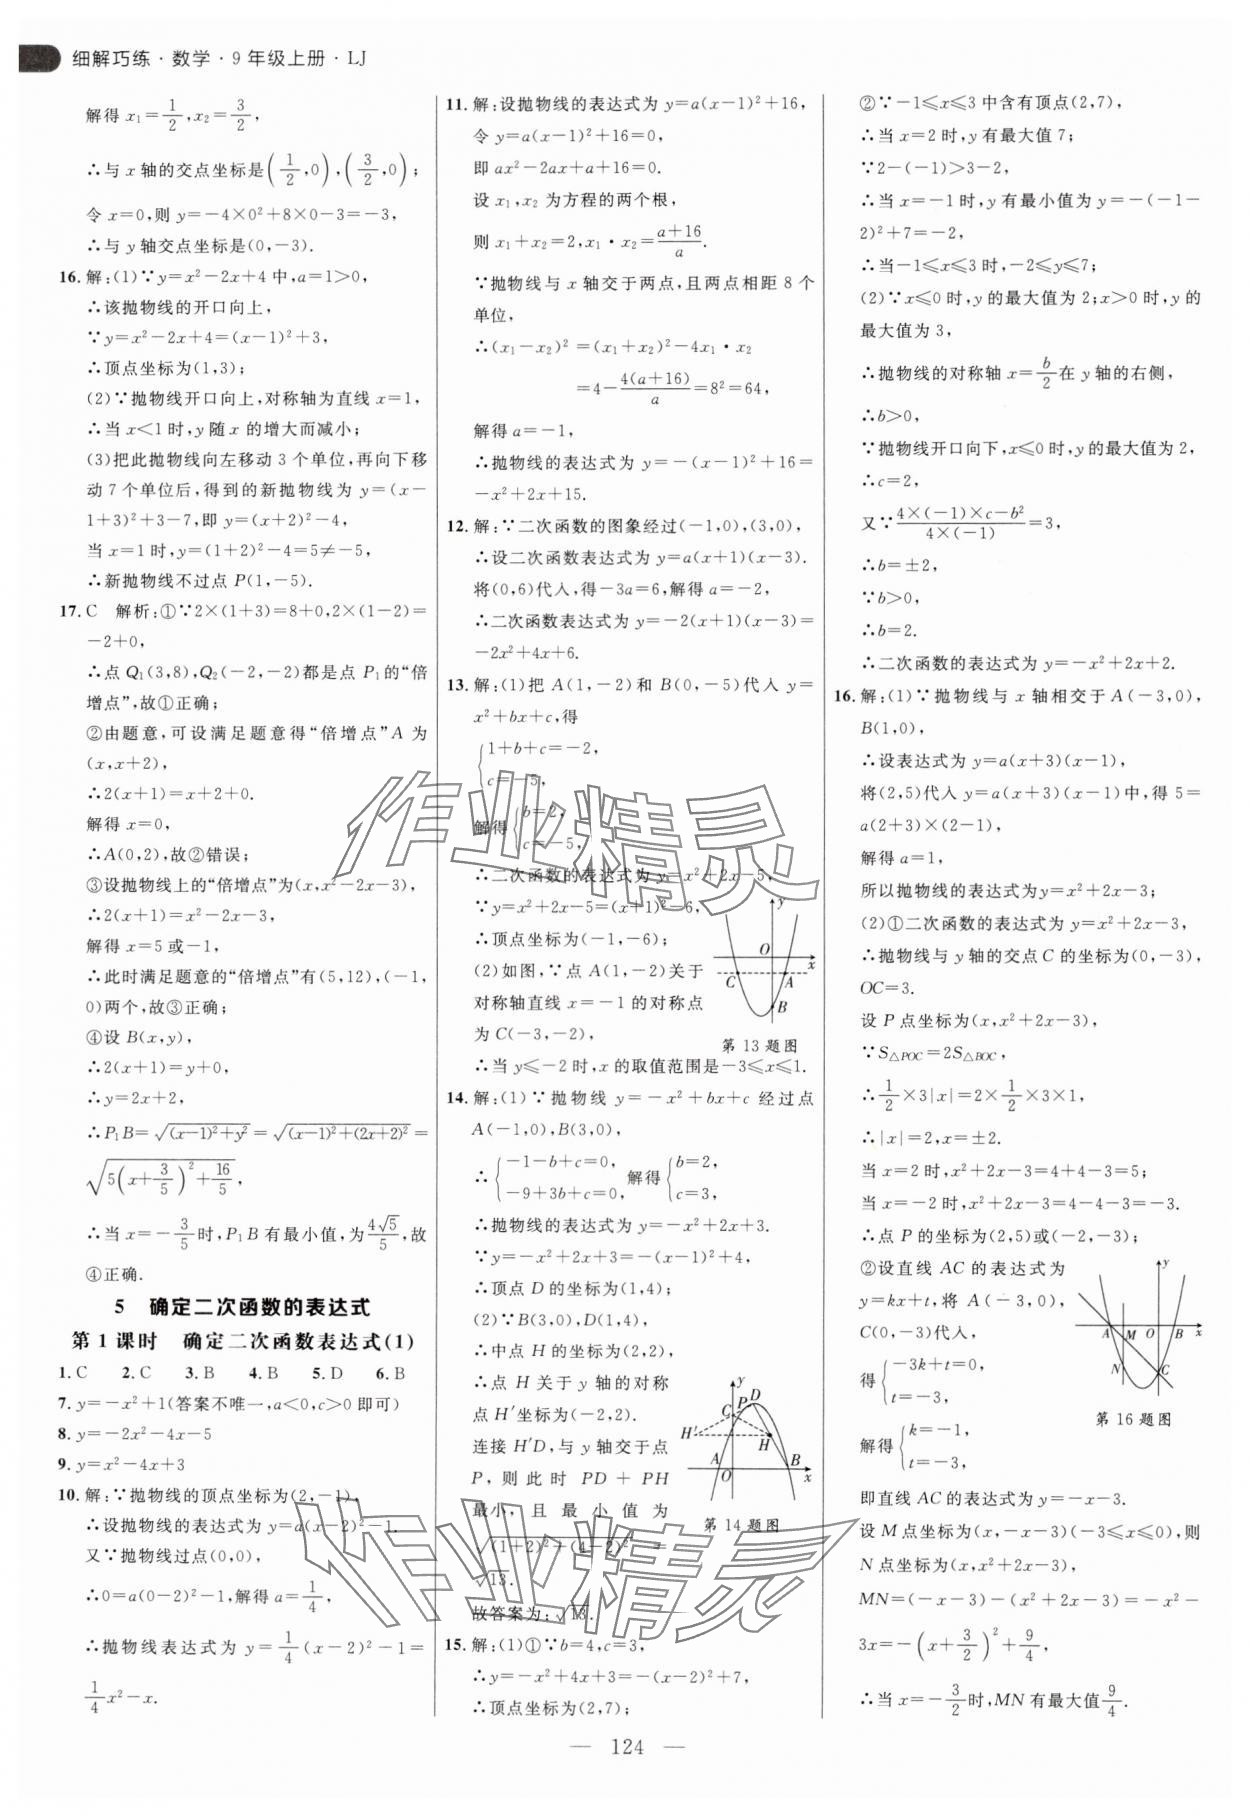 细解巧练·数学·9年级上册·LJ
解得 x₁=1/2,x₂=3/2,
∴与 x 轴的交点坐标是(1/2,0),(3/2,0);
令 x=0,则 y=-4×0²+8×0-3=-3,
∴与 y 轴交点坐标是(0,-3).
16. 解:(1)∵y=x²-2x+4 中,a=1>0,
∴该抛物线的开口向上,
∵y=x²-2x+4=(x-1)²+3,
∴顶点坐标为(1,3);
(2)∵抛物线开口向上,对称轴为直线 x=1,
∴当 x<1 时,y 随 x 的增大而减小;
(3)把此抛物线向左移动 3 个单位,再向下移
动 7 个单位后,得到的新抛物线为 y=(x-
1+3)²+3-7,即 y=(x+2)²-4,
当 x=1 时,y=(1+2)²-4=5≠-5,
∴新抛物线不过点 P(1,-5).
17. C 解析:①∵2×(1+3)=8+0,2×(1-2)=
-2+0,
∴点 Q₁(3,8),Q₂(-2,-2)都是点 P₁的“倍
增点”,故①正确;
②由题意,可设满足题意得“倍增点”A 为
(x,x+2),
∴2(x+1)=x+2+0.
解得 x=0,
∴A(0,2),故②错误;
③设抛物线上的“倍增点”为(x,x²-2x-3),
∴2(x+1)=x²-2x-3,
解得 x=5 或-1,
∴此时满足题意的“倍增点”有(5,12),(-1,
0)两个,故③正确;
④设 B(x,y),
∴2(x+1)=y+0,
∴y=2x+2,
∴P₁B=√((x-1)²+y²)=√((x-1)²+(2x+2)²)=
√(5(x+3/5)²+16/5),
∴当 x=-3/5时,P₁B 有最小值,为4√5/5,故
④正确.
5 确定二次函数的表达式
第 1 课时 确定二次函数表达式(1)
1. C 2. C 3. B 4. B 5. D 6. B
7. y=-x²+1(答案不唯一,a<0,c>0 即可)
8. y=-2x²-4x-5
9. y=x²-4x+3
10. 解:∵抛物线的顶点坐标为(2,-1),
∴设抛物线的表达式为 y=a(x-2)²-1.
又∵抛物线过点(0,0),
∴0=a(0-2)²-1,解得 a=1/4,
∴抛物线表达式为 y=1/4(x-2)²-1=
1/4x²-x.
11. 解:设抛物线的表达式为 y=a(x-1)²+16,
令 y=a(x-1)²+16=0,
即 ax²-2ax+a+16=0.
设 x₁,x₂ 为方程的两个根,
则 x₁+x₂=2,x₁·x₂=(a+16)/a.
∵抛物线与 x 轴交于两点,且两点相距 8 个
单位,
∴(x₁-x₂)²=(x₁+x₂)²-4x₁·x₂
=4-4(a+16)/a=8²=64,
解得 a=-1,
∴抛物线的表达式为 y=-(x-1)²+16=
-x²+2x+15.
12. 解:∵二次函数的图象经过(-1,0),(3,0),
∴设二次函数表达式为 y=a(x+1)(x-3).
将(0,6)代入,得-3a=6,解得 a=-2,
∴二次函数表达式为 y=-2(x+1)(x-3)=
-2x²+4x+6.
13. 解:(1)把 A(1,-2)和 B(0,-5)代入 y=
x²+bx+c,得
{1+b+c=-2,
c=-5,
解得{b=2,
c=-5,
∴二次函数的表达式为 y=x²+2x-5,
∵y=x²+2x-5=(x+1)²-6,
∴顶点坐标为(-1,-6);
(2)如图,∵点 A(1,-2)关于
对称轴直线 x=-1 的对称点
为 C(-3,-2),
y
O
x
C
A
B
第 13 题图
∴当 y≤-2 时,x 的取值范围是-3≤x≤1.
14. 解:(1)∵抛物线 y=-x²+bx+c 经过点
A(-1,0),B(3,0),
∴{-1-b+c=0, 解得{b=2,
-9+3b+c=0, c=3,
∴抛物线的表达式为 y=-x²+2x+3.
∵y=-x²+2x+3=-(x-1)²+4,
∴顶点 D 的坐标为(1,4);
(2)∵B(3,0),D(1,4),
∴中点 H 的坐标为(2,2),
∴点 H 关于 y 轴的对称
点 H′坐标为(-2,2).
连接 H′D,与 y 轴交于点
P,则此时 PD+PH
最小,且最小值为
√((1+2)²+(4-2)²)=
√13.
故答案为:√13.
y
C P D
H′
H
A
O
B
x
第 14 题图
15. 解:(1)①∵b=4,c=3,
∴y=-x²+4x+3=-(x-2)²+7,
∴顶点坐标为(2,7);
②∵-1≤x≤3 中含有顶点(2,7),
∴当 x=2 时,y 有最大值 7;
∵2-(-1)>3-2,
∴当 x=-1 时,y 有最小值为 y=-(-1-
2)²+7=-2,
∴当-1≤x≤3 时,-2≤y≤7;
(2)∵x≤0 时,y 的最大值为 2;x>0 时,y 的
最大值为 3,
∴抛物线的对称轴 x=b/2在 y 轴的右侧,
∴b>0,
∵抛物线开口向下,x≤0 时,y 的最大值为 2,
∴c=2,
又∵(4×(-1)×c-b²)/(4×(-1))=3,
∴b=±2,
∵b>0,
∴b=2.
∴二次函数的表达式为 y=-x²+2x+2.
16. 解:(1)∵抛物线与 x 轴相交于 A(-3,0),
B(1,0),
∴设表达式为 y=a(x+3)(x-1),
将(2,5)代入 y=a(x+3)(x-1)中,得 5=
a(2+3)×(2-1),
解得 a=1,
所以抛物线的表达式为y=x²+2x-3;
(2)①二次函数的表达式为 y=x²+2x-3,
∴抛物线与 y 轴的交点 C 的坐标为(0,-3),
OC=3.
设 P 点坐标为(x,x²+2x-3),
∵S△POC=2S△BOC,
∴1/2×3|x|=2×1/2×3×1,
∴|x|=2,x=±2.
当 x=2 时,x²+2x-3=4+4-3=5;
当 x=-2 时,x²+2x-3=4-4-3=-3.
∴点 P 的坐标为(2,5)或(-2,-3);
②设直线 AC 的表达式为
y=kx+t,将 A(-3,0),
C(0,-3)代入,
得{-3k+t=0,
t=-3,
解得{k=-1,
t=-3,
y
A
M
O
B
x
N
C
第 16 题图
即直线 AC 的表达式为 y=-x-3.
设 M 点坐标为(x,-x-3)(-3≤x≤0),则
N 点坐标为(x,x²+2x-3),
MN=(-x-3)-(x²+2x-3)=-x²-
3x=-(x+3/2)²+9/4,
∴当 x=-3/2时,MN 有最大值9/4.
— 124 —
作业精灵
作业精灵